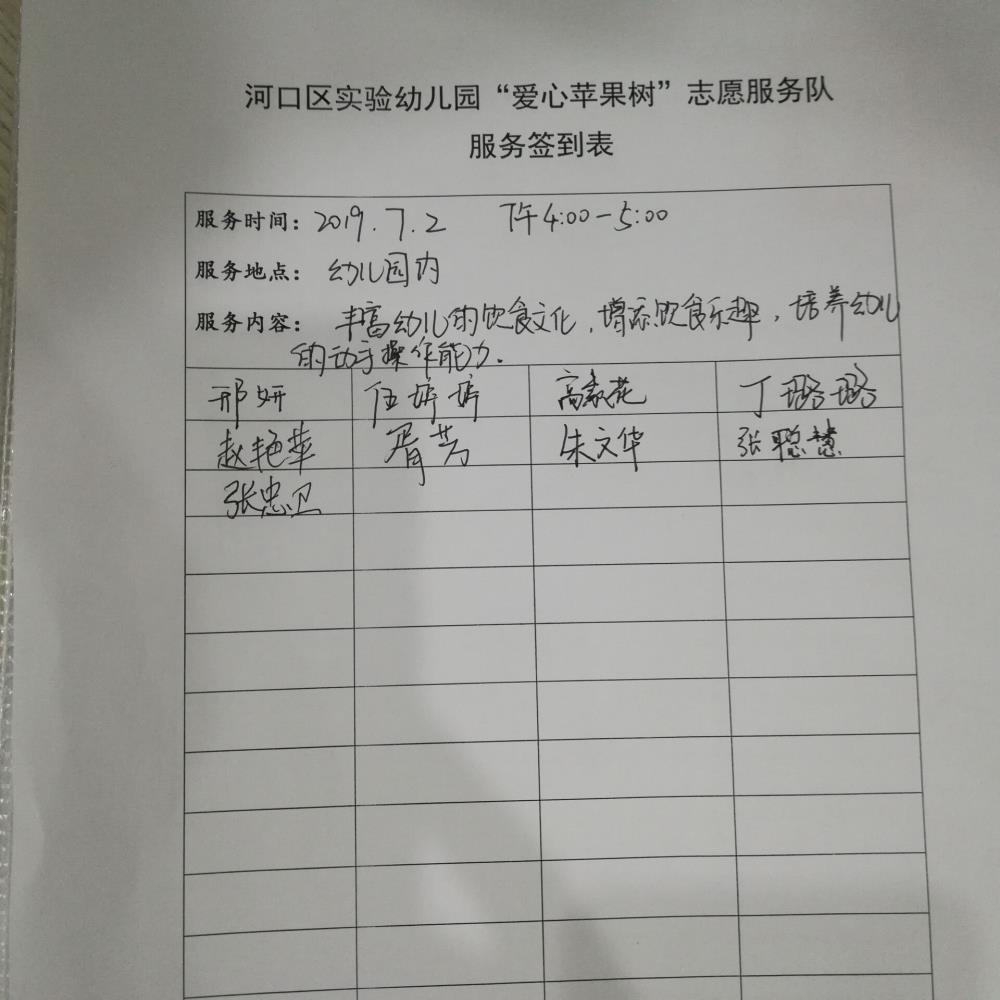 河口区实验幼儿园“爱心苹果树”志愿服务队
服务签到表
服务时间：2019.7.2 下午4:00-5:00
服务地点：幼儿园内
服务内容：丰富幼儿的饮食文化，增添饮食乐趣，培养幼儿
的动手操作能力.
邢妍 任婷婷 高家花 丁璐璐
赵艳华 胥芳 朱文华 张聪慧
张忠卫